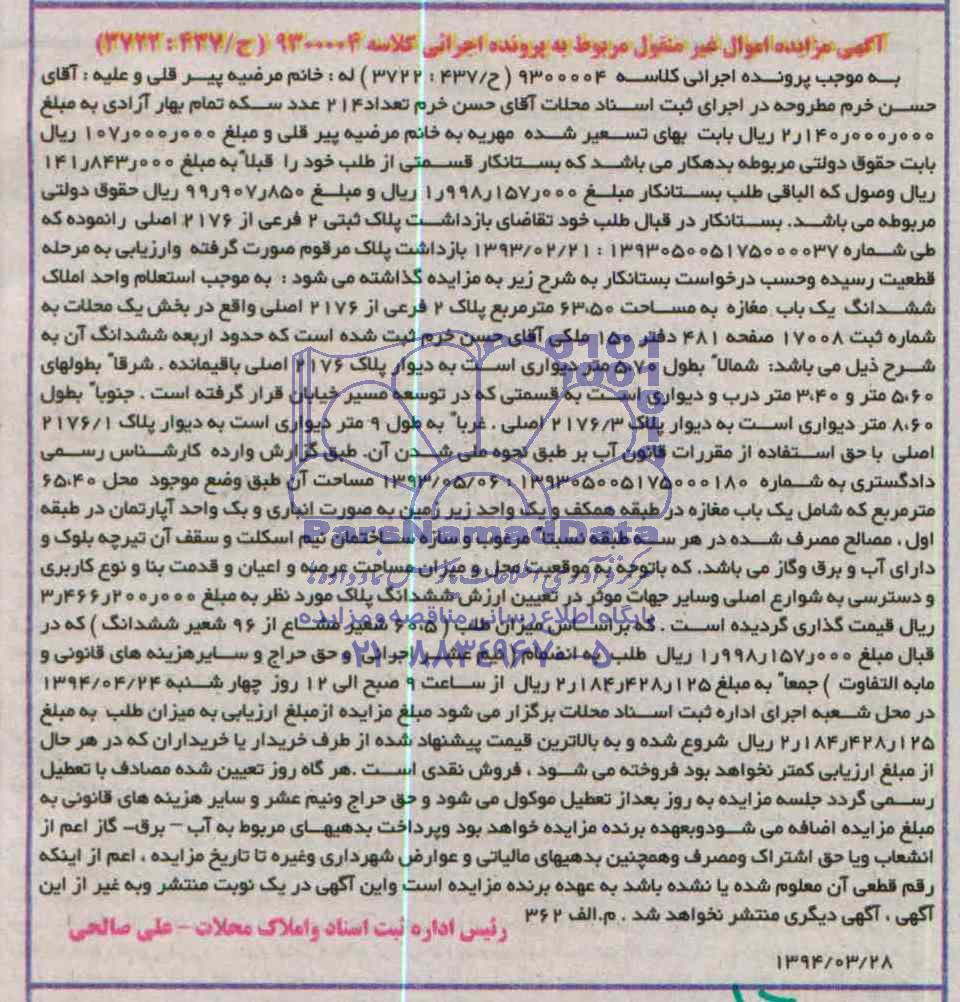 آگهی مزایده اموال غیر منقول مربوط به پرونده اجرائی کلاسه ۹۳۰۰۰۰۴ (ح/۴۳۷ : ۳۷۲۲)
به موجب پرونده اجرائی کلاسه ۹۳۰۰۰۰۴ (ح/۴۳۷ : ۳۷۲۲) له : خانم مرضیه پیر قلی و علیه : آقای
حسن خرم مطروحه در اجرای ثبت اسناد محلات آقای حسن خرم تعداد ۲۱۴ عدد سکه تمام بهار آزادی به مبلغ
۲ر۱۴۰ر۰۰۰ر۰۰۰ ریال بابت بهای تسعیر شده مهریه به خانم مرضیه پیر قلی و مبلغ ۱۰۷ر۰۰۰ر۰۰۰ ریال
بابت حقوق دولتی مربوطه بدهکار می باشد که بستانکار قسمتی از طلب خود را قبلاً به مبلغ ۱۴۱ر۸۴۳ر۰۰۰
ریال وصول که الباقی طلب بستانکار مبلغ ۱ر۹۹۸ر۱۵۷ر۰۰۰ ریال و مبلغ ۹۹ر۹۰۷ر۸۵۰ ریال حقوق دولتی
مربوطه می باشد. بستانکار در قبال طلب خود تقاضای بازداشت پلاک ثبتی ۲ فرعی از ۲۱۷۶ اصلی رانموده که
طی شماره ۱۳۹۳۰۵۰۰۵۱۷۵۰۰۰۰۳۷ : ۱۳۹۳/۰۲/۲۱ بازداشت پلاک مرقوم صورت گرفته وارزیابی به مرحله
قطعیت رسیده وحسب درخواست بستانکار به شرح زیر به مزایده گذاشته می شود : به موجب استعلام واحد املاک
ششدانگ یک باب مغازه به مساحت ۶۳،۵۰ مترمربع پلاک ۲ فرعی از ۲۱۷۶ اصلی واقع در بخش یک محلات به
شماره ثبت ۱۷۰۰۸ صفحه ۴۸۱ دفتر ۱۵۰ ملکی آقای حسن خرم ثبت شده است که حدود اربعه ششدانگ آن به
شرح ذیل می باشد: شمالاً بطول ۵،۷۰ متر دیواری است به دیوار پلاک ۲۱۷۶ اصلی باقیمانده . شرقاً بطولهای
۵،۶۰ متر و ۳،۴۰ متر درب و دیواری است به قسمتی که در توسعه مسیر خیابان قرار گرفته است . جنوباً بطول
۸،۶۰ متر دیواری است به دیوار پلاک ۲۱۷۶/۳ اصلی . غرباً به طول ۹ متر دیواری است به دیوار پلاک ۲۱۷۶/۱
اصلی با حق استفاده از مقررات قانون آب بر طبق نحوه ملی شدن آن. طبق گزارش وارده کارشناس رسمی
دادگستری به شماره ۱۳۹۳۰۵۰۰۵۱۷۵۰۰۰۱۸۰ : ۱۳۹۳/۰۵/۰۶ مساحت آن طبق وضع موجود محل ۶۵،۴۰
مترمربع که شامل یک باب مغازه در طبقه همکف و یک واحد زیر زمین به صورت انباری و یک واحد آپارتمان در طبقه
اول ، مصالح مصرف شده در هر سه طبقه نسبتاً مرغوب و سازه ساختمان نیم اسکلت و سقف آن تیرچه بلوک و
دارای آب و برق وگاز می باشد. که باتوجه به موقعیت محل و میزان مساحت عرصه و اعیان و قدمت بنا و نوع کاربری
و دسترسی به شوارع اصلی وسایر جهات موثر در تعیین ارزش ششدانگ پلاک مورد نظر به مبلغ ۳ر۴۶۶ر۲۰۰ر۰۰۰
ریال قیمت گذاری گردیده است . که براساس میزان طلب ( شعیر مشاع از ۹۶ شعیر ششدانگ ) که در
قبال مبلغ ۱ر۹۹۸ر۱۵۷ر۰۰۰ ریال طلب به انضمام ( نیم عشر اجرائی و حق حراج و سایرهزینه های قانونی و
مابه التفاوت ) جمعاً به مبلغ ۲ر۱۸۴ر۴۲۸ر۱۲۵ ریال از ساعت ۹ صبح الی ۱۲ روز چهار شنبه ۱۳۹۴/۰۴/۲۴
در محل شعبه اجرای اداره ثبت اسناد محلات برگزار می شود مبلغ مزایده ازمبلغ ارزیابی به میزان طلب به مبلغ
۲ر۱۸۴ر۴۲۸ر۱۲۵ ریال شروع شده و به بالاترین قیمت پیشنهاد شده از طرف خریدار یا خریداران که در هر حال
از مبلغ ارزیابی کمتر نخواهد بود فروخته می شود ، فروش نقدی است .هر گاه روز تعیین شده مصادف با تعطیل
رسمی گردد جلسه مزایده به روز بعداز تعطیل موکول می شود و حق حراج ونیم عشر و سایر هزینه های قانونی به
مبلغ مزایده اضافه می شودوبعهده برنده مزایده خواهد بود وپرداخت بدهیهای مربوط به آب – برق- گاز اعم از
انشعاب ویا حق اشتراک ومصرف وهمچنین بدهیهای مالیاتی و عوارض شهرداری وغیره تا تاریخ مزایده ، اعم از اینکه
رقم قطعی آن معلوم شده یا نشده باشد به عهده برنده مزایده است واین آگهی در یک نوبت منتشر وبه غیر از این
آگهی ، آگهی دیگری منتشر نخواهد شد . م.الف ۳۶۲
رئیس اداره ثبت اسناد واملاک محلات - علی صالحی
۱۳۹۴/۰۳/۲۸
ParsNamadData
پایگاه اطلاع رسانی مناقصه و مزایده
۰۲۱-۸۸۳۴۹۶۷۰-۵